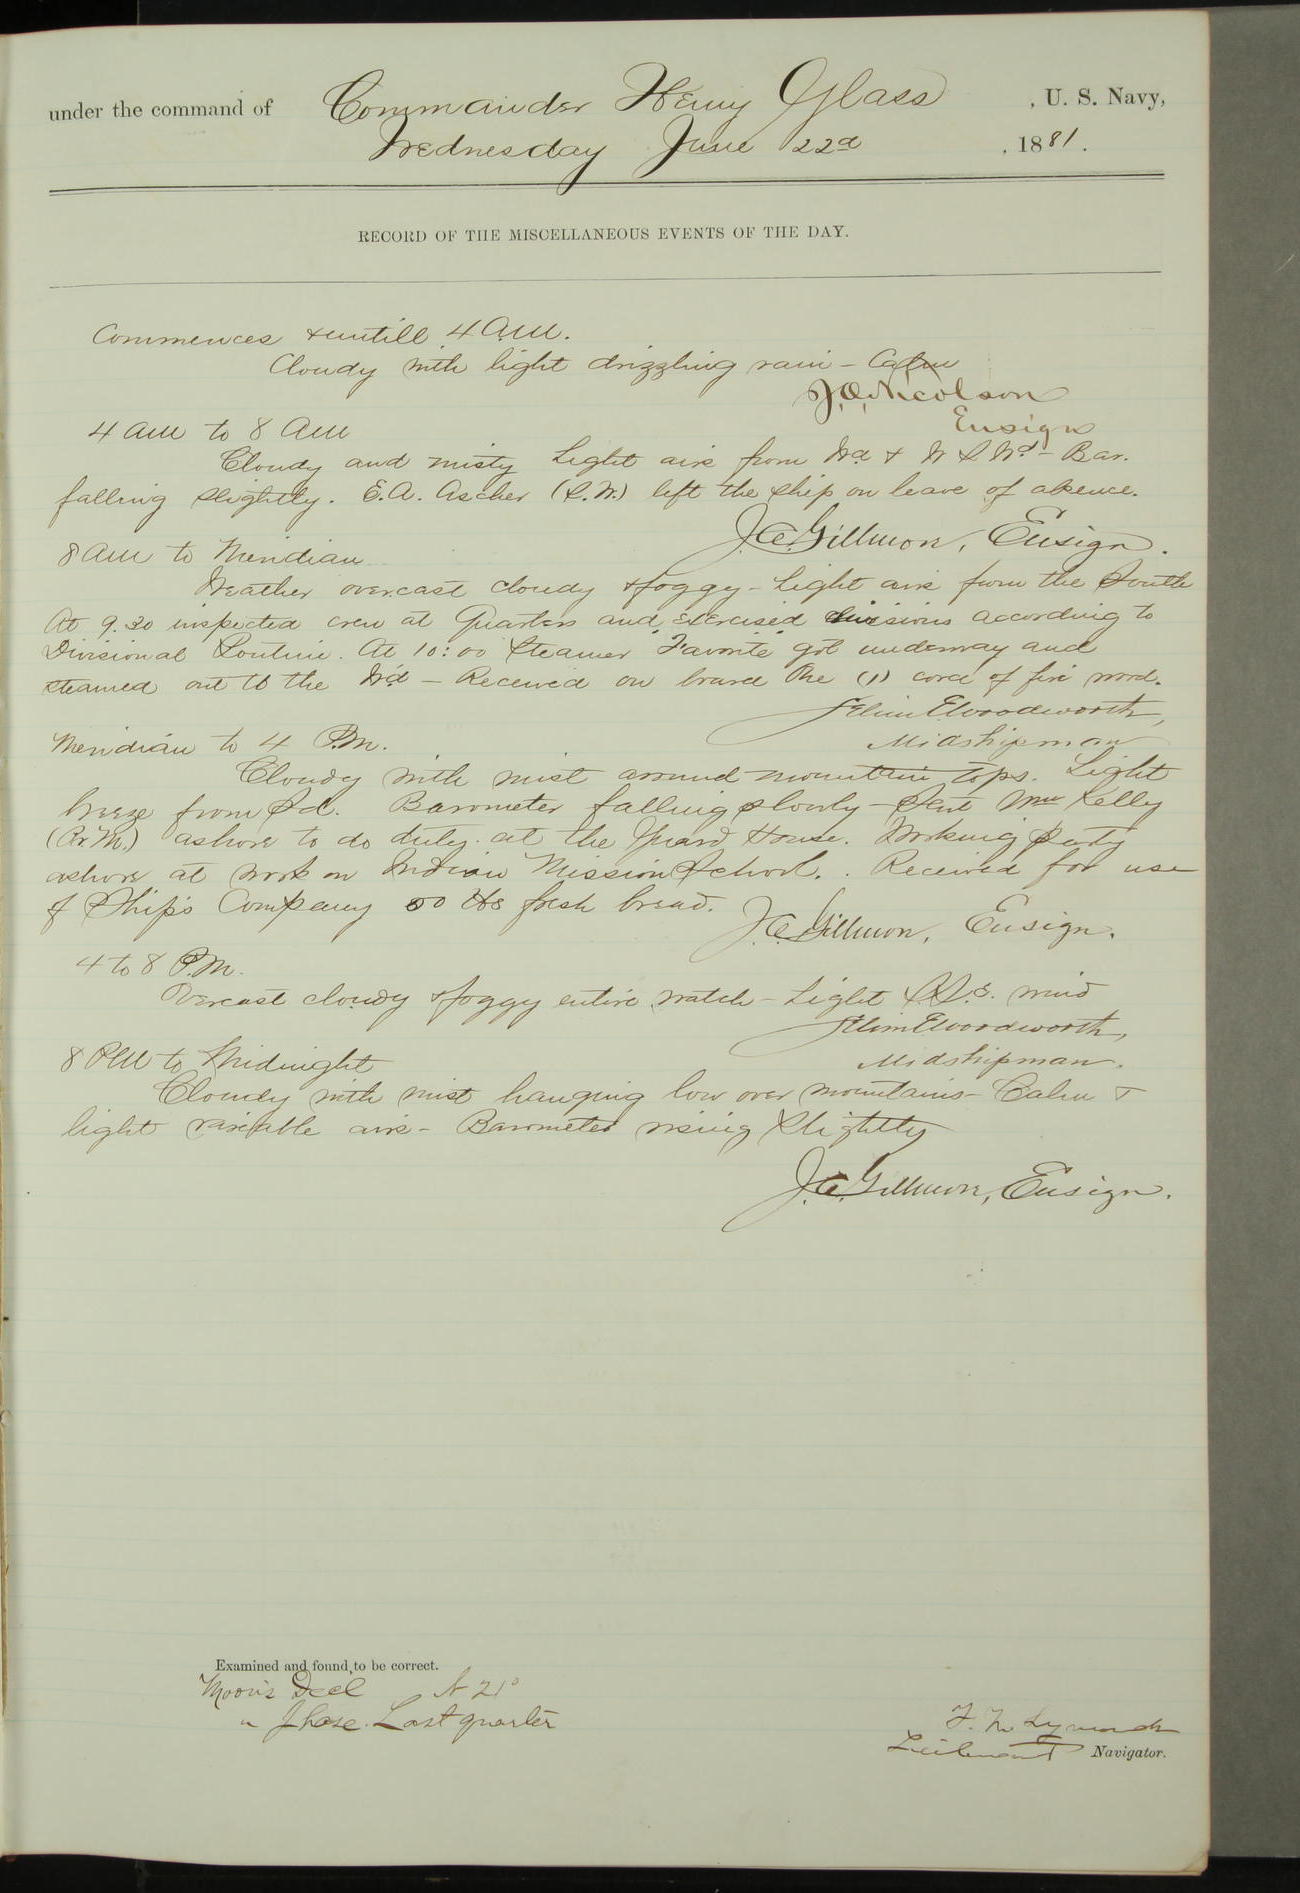 under the command of Commander Henry Glass, U. S. Navy,
Wednesday June 22d, 1881.
RECORD OF THE MISCELLANEOUS EVENTS OF THE DAY.
Commences & untill 4 A.M.
Cloudy with light drizzling rain - Calm
Nicolson
Ensign
4 AM to 8 AM
Cloudy and misty Light airs from Wd & W S Wd - Bar.
falling slightly. E.A. Ascher (S.W.) left the ship on leave of absence.
J.C. Gillmore, Ensign.
8 AM to Meridian
Weather overcast cloudy & foggy - Light airs from the South
At 9.30 inspected crew at Quarters and exercised divisions according to
Divisional Routine. At 10:00 Steamer "Favorite" got underway and
steamed out to the Wd - Received on board One (1) cord of fire wood.
Selim E Woodworth,
Midshipman
Meridian to 4 P.M.
Cloudy with mist around mountain tops. Light
breeze from Sd. Barometer falling slowly - Sent Wm Kelly
(Pr. M.) ashore to do duty at the Guard House. Working party
ashore at work on Indian Mission School. Received for use
of Ship's Company 50 lbs fresh bread.
J.C. Gillmore, Ensign.
4 to 8 P.M.
Overcast cloudy & foggy entire watch - Light S.S.E. wind
Selim E Woodworth,
Midshipman.
8 PM to Midnight
Cloudy with mist hanging low over mountains - Calm &
light variable airs - Barometer rising slightly
J.C. Gillmore, Ensign.
Examined and found to be correct.
Moon's Decl N 21°
" Phase. Last quarter
Lieutenant Navigator.